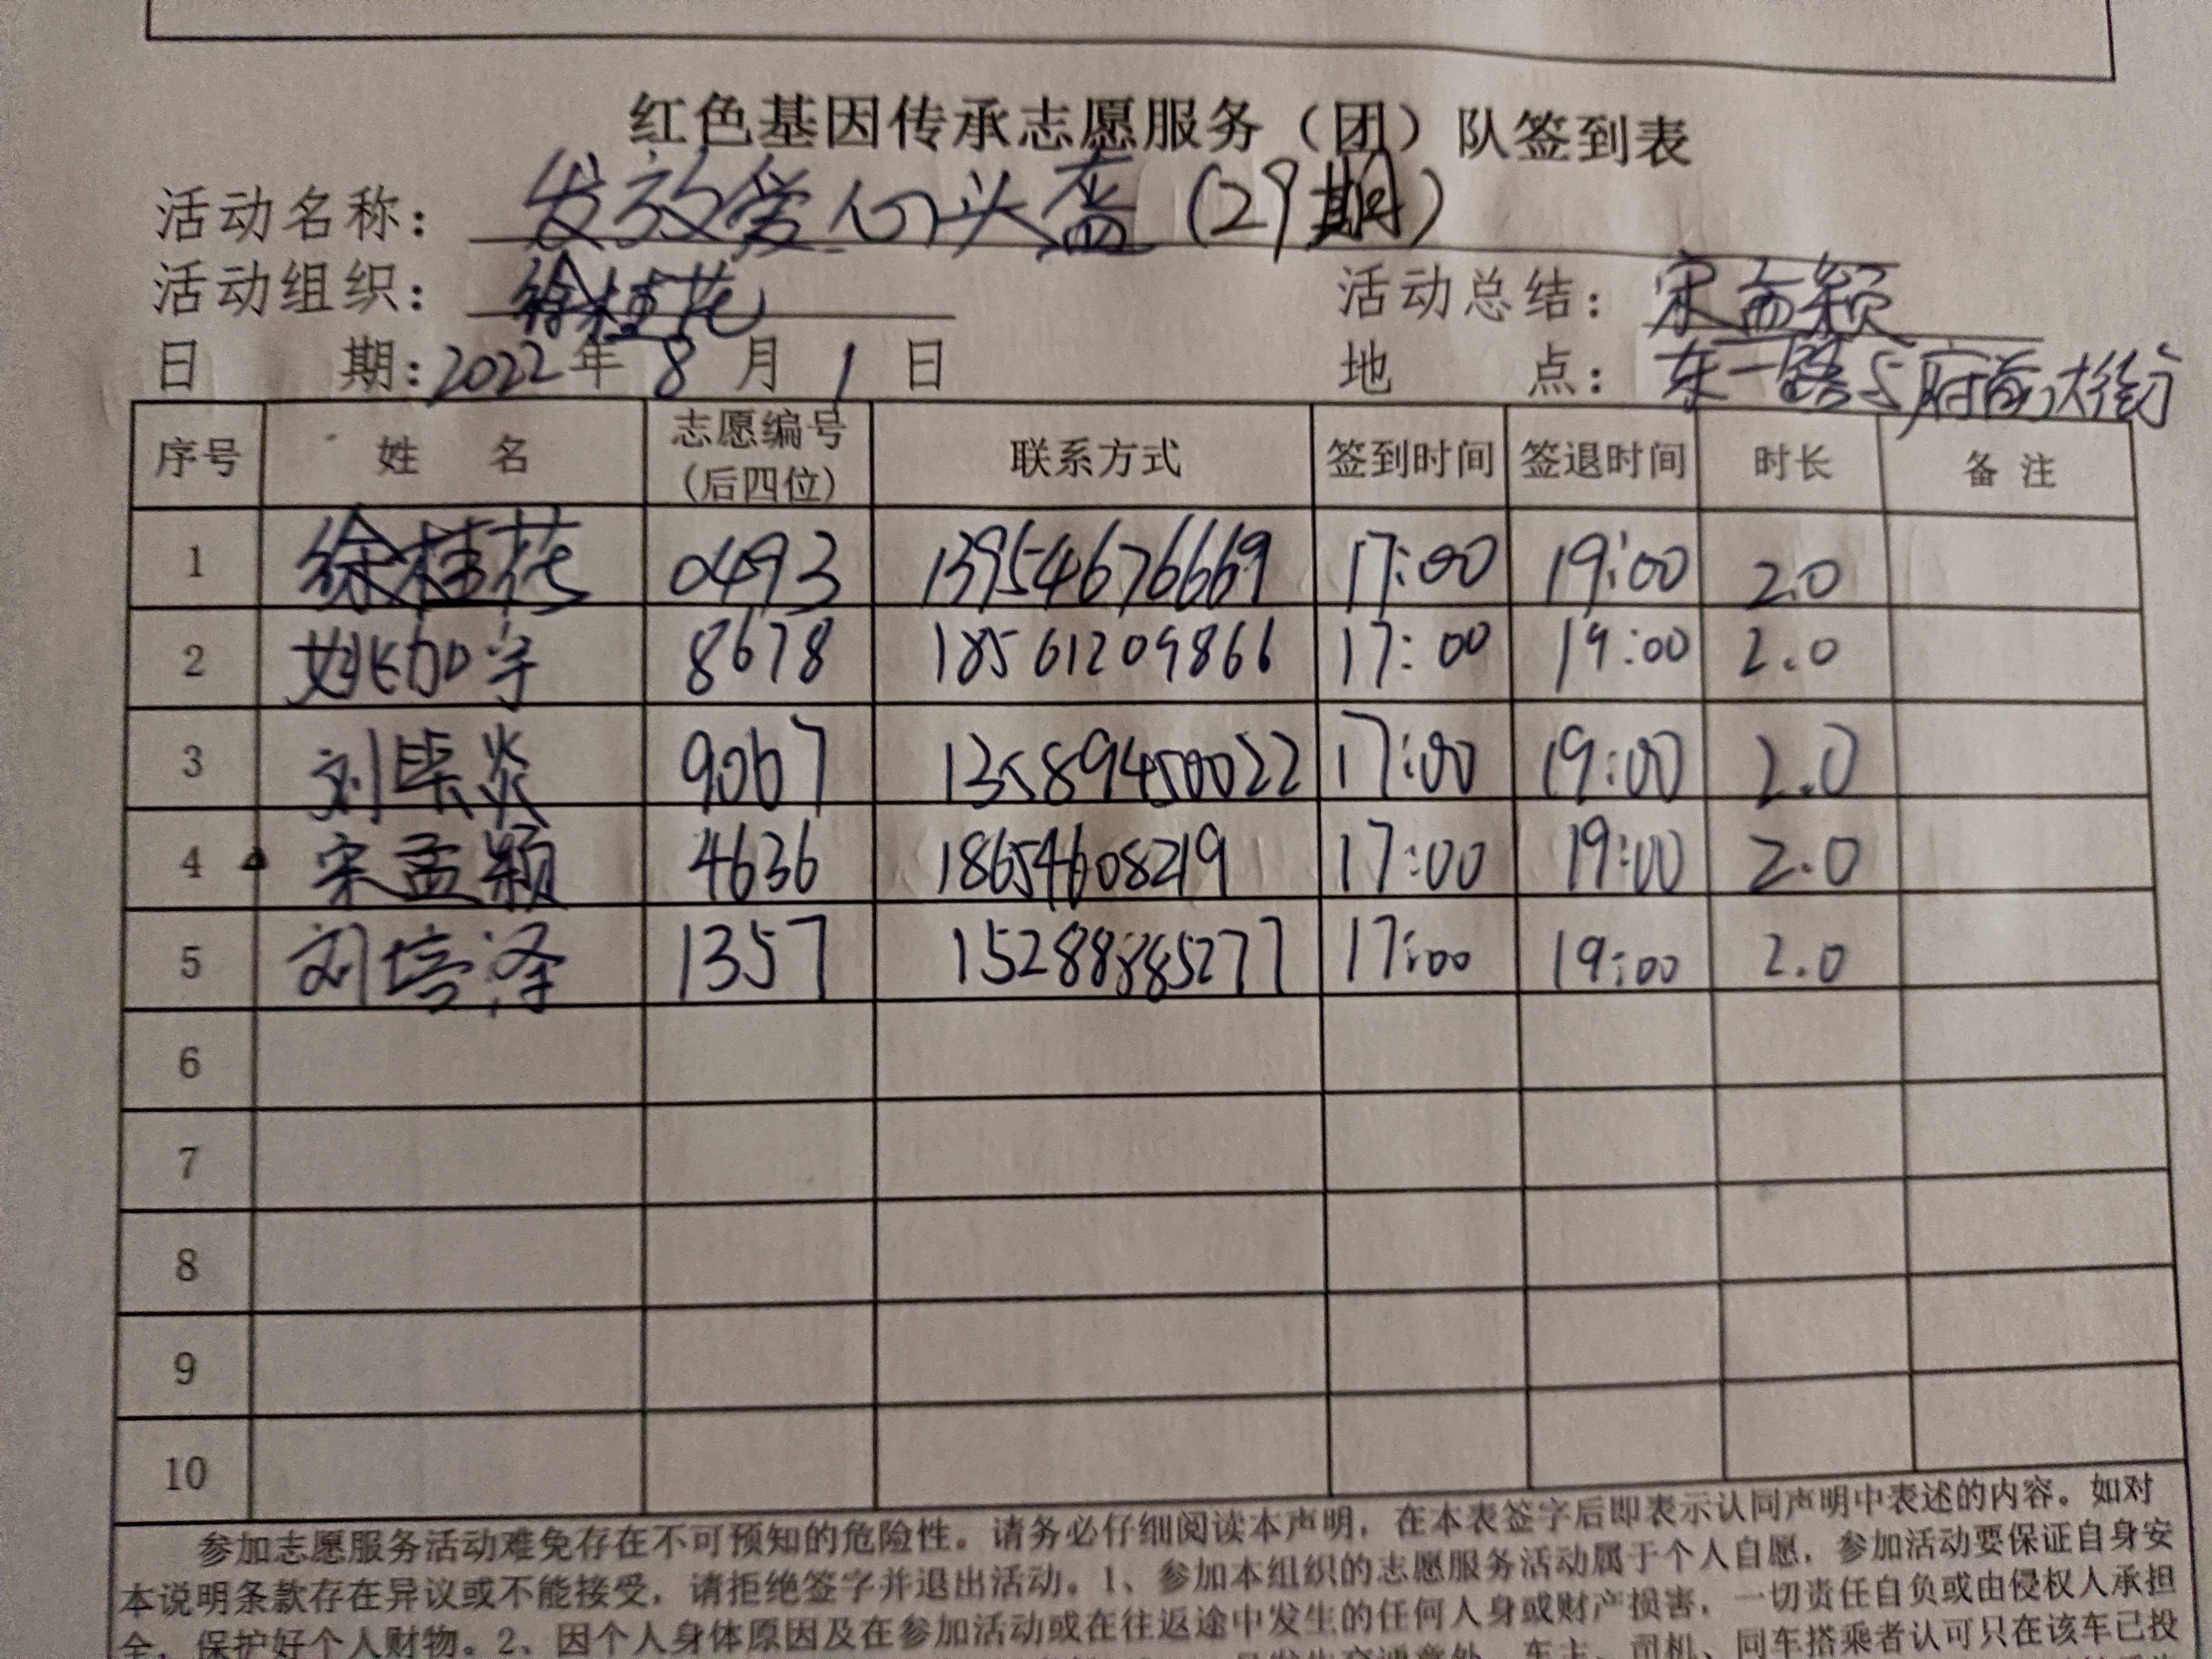 红色基因传承志愿服务（团）队签到表
活动名称：发放爱心头盔（29期）
活动组织：徐桂花 活动总结：宋孟颖
日 期：2022年8月1日 地 点：东一路与府前大街
序号 姓 名 志愿编号（后四位） 联系方式 签到时间 签退时间 时长 备注
1 徐桂花 0493 13954676669 17:00 19:00 2.0
2 姚加宇 8678 18561209866 17:00 19:00 2.0
3 刘毕炎 9067 13589450022 17:00 19:00 2.0
4 宋孟颖 4636 18654608219 17:00 19:00 2.0
5 刘培泽 1357 15288885277 17:00 19:00 2.0
6
7
8
9
10
参加志愿服务活动难免存在不可预知的危险性。请务必仔细阅读本声明，在本表签字后即表示认同声明中表述的内容。如对
本说明条款存在异议或不能接受，请拒绝签字并退出活动。1、参加本组织的志愿服务活动属于个人自愿，参加活动要保证自身安
全，保护好个人财物。2、因个人身体原因及在参加活动或在往返途中发生的任何人身或财产损害，一切责任自负或由侵权人承担
车主、司机、同车搭乘者认可只在该车已投